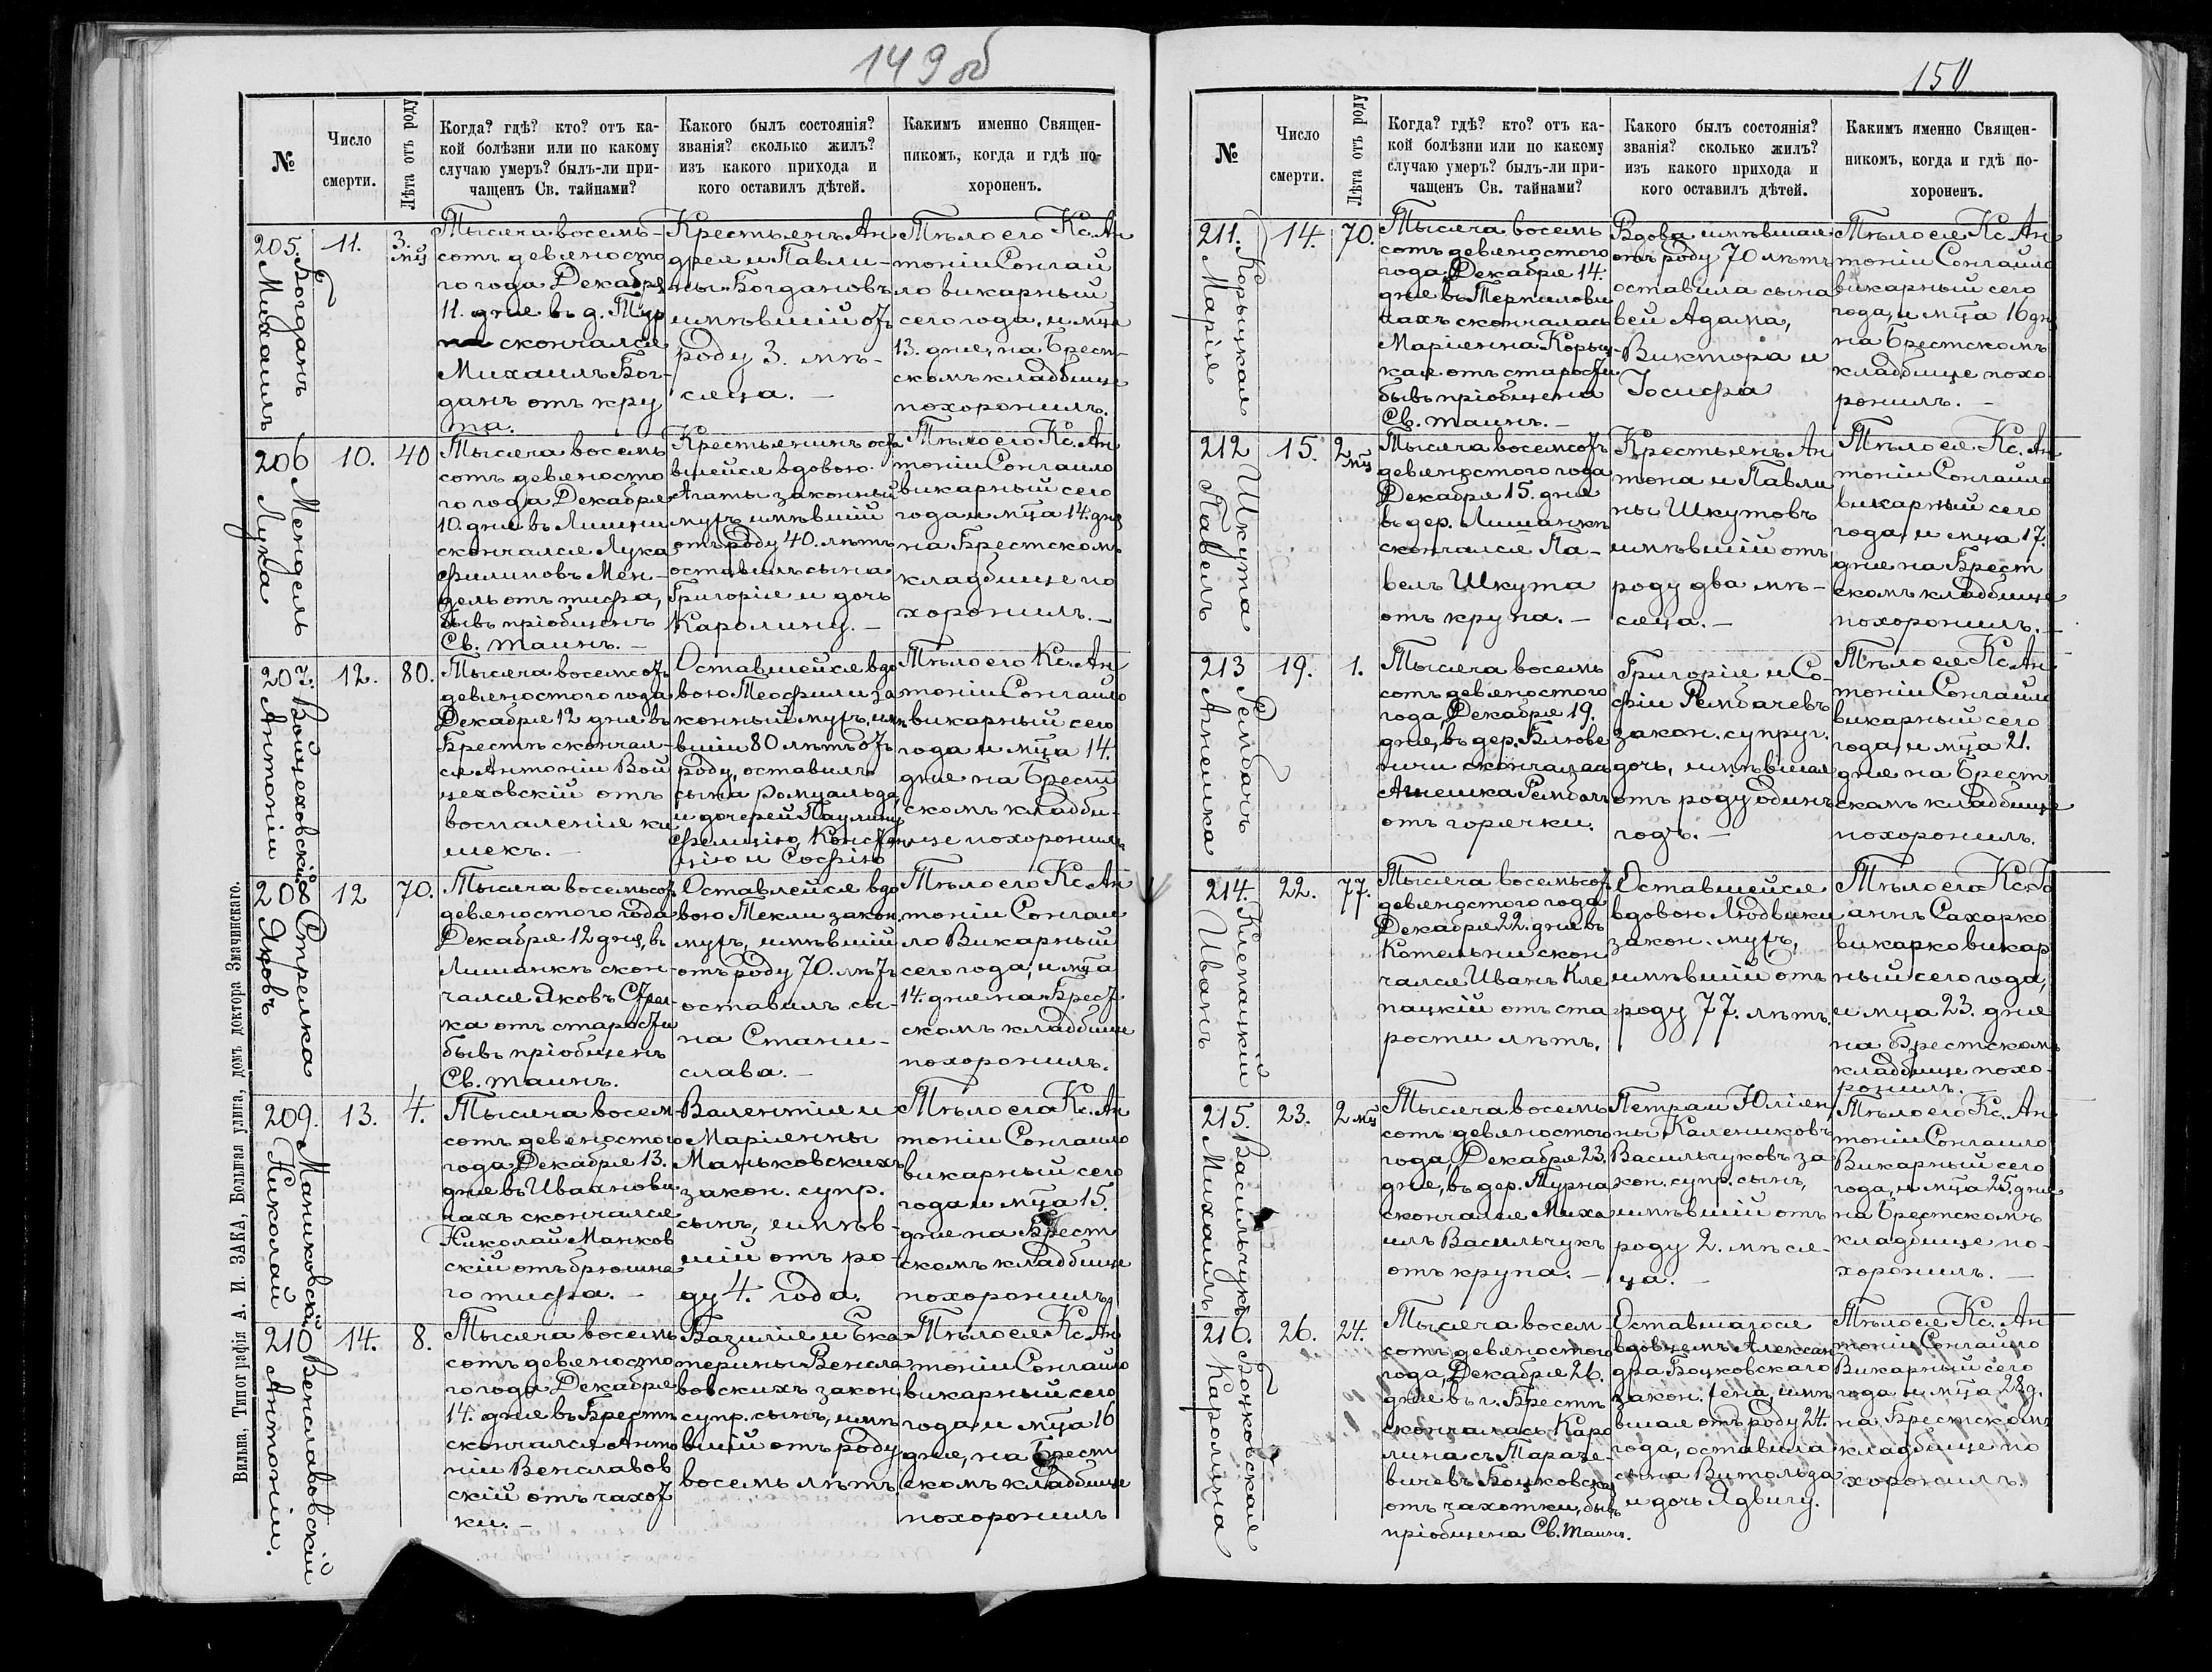 149 об
№
Число
смерти.
Лѣта отъ роду
Когда? гдѣ? кто? отъ ка-
кой болѣзни или по какому
случаю умеръ? былъ-ли при-
чащенъ Св. тайнами?
Какого былъ состоянія?
званія? сколько жилъ?
изъ какого прихода и
кого оставилъ дѣтей.
Какимъ именно Священ-
никомъ, когда и гдѣ по-
хороненъ.
205.
Богданъ
Михаилъ
11.
3.
мц
Тысяча восемь-
сотъ девяносто
го года Декабря
11. дня въ д. Тур
на скончался
Михаилъ Бог-
данъ отъ кру
па.
Крестьянъ Ан
дрея и Павли-
ны Богдановъ
имѣвшій отъ
роду 3. мѣ-
сяца. —
Тѣло его Кс. Ан
тоній Сонгай
ло викарный
сего года, и мца
13. дня, на Брест-
скомъ кладбище
похоронилъ.
206
Мендель
Лука
10.
40
Тысяча восемь
сотъ девяносто
го года Декабря
10. дня въ Лищи
скончался Лука
Филиповъ Мен-
дель отъ тифа,
бывъ пріобщенъ
Св. таинъ. —
Крестьянинъ оста
вшейся вдовою
Агаты законный
мужъ имѣвшій
отъ роду 40. лѣтъ
оставилъ сына
Григорія и дочь
Каролину. —
Тѣло его Кс. Ан
тоній Сонгаило
викарный сего
года и мца 14. дня
на Брестскомъ
кладбище по
хоронилъ. —
207.
Войцеховскій
Антоній
12.
80.
Тысяча восемсотъ
девяностого года
Декабря 12 дня въ
Брестѣ скончал-
ся Антоній Вой
цеховскій отъ
воспаленія ки
шекъ. —
Оставшейся вдо
вою Теофили за
конный мужъ, имѣ
вшій 80 лѣтъ отъ
роду, оставилъ
сына Ромуальда
и дочерей Паулину
Фелицію, Констан
цію и Софію
Тѣло его Кс. Ан
тоній Сонгаило
викарный сего
года и мца 14.
дня на Брест
скомъ кладби-
ще похоронилъ
208
Стрелка
Яковъ
12
70.
Тысяча восемьсотъ
девяностого года
Декабря 12 дня, въ
Лищанкѣ скон-
чался Яковъ Стрел-
ка отъ старости
бывъ пріобщенъ
Св. таинъ.
Оставлейся вдо
вою Текли закон.
мужъ, имѣвшій
отъ роду 70. лѣтъ
оставилъ сы-
на Стани-
слава. —
Тѣло его Кс. Ан
тоній Сонгаи
ло Викарный
сего года, и мца
14. дня на Брест
скомъ кладбище
похоронилъ.
209.
Маниковскій
Николай
13.
4.
Тысяча восем
сотъ девяностого
года Декабря 13.
дня въ Иваанови
чахъ скончался
Николай Манков
скій отъ брюшна
го тифа. —
Валентія и
Маріянны
Маньковскихъ
закон. супр.
сынъ, имѣв-
шій отъ ро-
ду 4. года.
Тѣло его Кс. Ан
тоній Сонгаило
викарный сего
года и мца 15.
дня на Брест
скомъ кладбище
похоронилъ
210
Венславовскій
Антоній.
14.
8.
Тысяча восемь
сотъ девяносто
го года Декабря
14. дня въ Брестѣ
скончался Анто
ній Венславов
скій отъ чахот
ки. —
Базилія и Ека
терины Венсла
вовскихъ закон
супр. сынъ, имѣ
вшій отъ роду
восемь лѣтъ.
Тѣло ея Кс. Ан
тоній Сонгаило
викарный сего
года, и мца 16
дня, на Брест
скомъ кладбище
похоронилъ
Вильна, Типографія А. И. ЗАКА, Болшая улица, домъ доктора Змачинскаго.
150
№
Число
смерти.
Лѣта отъ роду
Когда? гдѣ? кто? отъ ка-
кой болѣзни или по какому
случаю умеръ? былъ-ли при-
чащенъ Св. тайнами?
Какого былъ состоянія?
званія? сколько жилъ?
изъ какого прихода и
кого оставилъ дѣтей.
Какимъ именно Священ-
никомъ, когда и гдѣ по-
хороненъ.
211.
Корыцкая
Марія
14.
70.
Тысяча восемь
сотъ девяностого
года, Декабря 14.
дня въ Терпилови
чахъ скончалась
Маріянна Корыц-
кая отъ старости
бывъ пріобщена
Св. таинъ. —
Вдова имѣвшая
отъ роду 70 лѣтъ
оставила сына
вей Адама,
Викторія и
Іосифа
Тѣло ея Кс. Ан
тоній Сонгаило
викарный сего
года, и мца 16 дня
на Брестскомъ
кладбище похо
ронилъ. —
212
Шкута
Павелъ
15.
2 мц
Тысяча восемсотъ
девяностого года
Декабря 15. дня
въ дер. Лищанкѣ
скончался Па-
велъ Шкута
отъ крупа. —
Крестьянъ Ан
тона и Павли
ны Шкутовъ
имѣвшій отъ
роду два мѣ-
сяца. —
Тѣло ея Кс. Ан
тоній Сонгаило
викарный сего
года, и мца 17.
дня на Брест
скомъ кладбище
похоронилъ. —
213
Рембачъ
Анешка
19.
1.
Тысяча восемь
сотъ девяностого
года, Декабря 19.
дня, въ дер. Блюве
ничи скончалась
Анешка Рембачъ
отъ горячки.
Григорія и Со-
фіи Рембачевъ
закон. супруг.
дочь, имѣвшая
отъ роду одинъ
годъ. —
Тѣло ея Кс. Ан
тоній Сонгаило
викарный сего
года, и мца 21.
дня на Брест
скомъ кладбище
похоронилъ.
214.
Клепацкій
Иванъ
22.
77.
Тысяча восемьсотъ
девяностого года
Декабря 22. дня въ
Котельни скон
чался Иванъ Кле
пацкій отъ ста
рости лѣтъ.
Оставшейся
вдовою Людвики
закон. мужъ,
имѣвшій отъ
роду 77. лѣтъ.
Тѣло его Кс. Іо
аннъ Сахарко
викарко викар
ный сего года,
и мца 23. дня
на Брестскомъ
кладбище похо-
ронилъ.
215.
Васильчукъ
Михаилъ
23.
2 мц
Тысяча восемь
сотъ девяностого
года, Декабря 23.
дня, въ дер. Турна
скончался Миха
илъ Васильчукъ
отъ крупа. —
Петра и Юліян
ны Калениковъ
Васильчуковъ за
кон. супр. сынъ,
имѣвшій отъ
роду 2. мѣся-
ца. —
Тѣло его Кс. Ан
тоній Сонгаило
Викарный сего
года, и мца 25. дня
на Брестскомъ
кладбище по-
хоронилъ. —
216.
Боцковская
Каролина
26.
24.
Тысяча восем
сотъ девяностого
года, Декабря 26.
дня в г. Брестѣ
скончалась Каро
лина съ Тарасе-
вичевъ Боцковская
отъ чахотки, бывъ
пріобщена Св. таинъ.
Оставшагося
вдовцемъ Алексан
дра Боцковскаго
закон. жена, имѣ
вшая отъ роду 24.
года, оставила
сына Витольда
и дочь Ядвигу.
Тѣло ея Кс. Ан
тоній Сонгаило
Викарный сего
года и мца 28 д.
на Брестскомъ
кладбище по
хоронилъ.